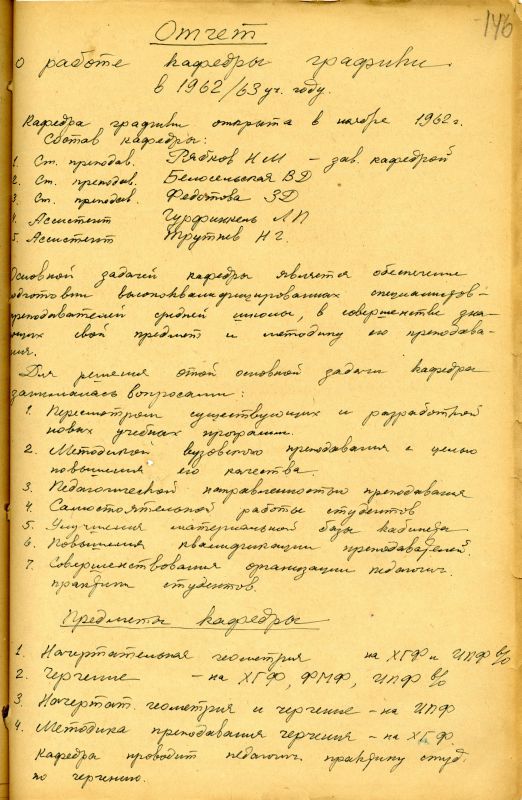 146
Отчет
о работе кафедры графики
в 1962/63 уч. году.
Кафедра графики открыта в ноябре 1962 г.
Состав кафедры:
1. Ст. преподав. Рябков Н М – зав. кафедрой
2. Ст. преподав. Белосельская В Д
3. Ст. преподав. Федотова З Д
4. Ассистент Гурфинкель Л П
5. Ассистент Трутнев Н Г.
Основной задачей кафедры является обеспечение
подготовки высококвалифицированных специалистов-
преподавателей средней школы, в совершенстве зна-
ющих свой предмет и методику его преподава-
ния.
Для решения этой основной задачи кафедра
занималась вопросами:
1. Пересмотром существующих и разработкой
новых учебных программ.
2. Методикой вузовского преподавания с целью
повышения его качества.
3. Педагогической направленностью преподавания
4. Самостоятельной работы студентов
5. Улучшения материальной базы кабинета
6. Повышения квалификации преподавателей.
7. Совершенствования организации педагогич.
практики студентов.
Предметы кафедры
1. Начертательная геометрия на ХГФ и ИПФ в/о
2. Черчение – на ХГФ, ФМФ, ИПФ в/о
3. Начертат. геометрия и черчение – на ИПФ
4. Методика преподавания черчения – на ХГФ.
Кафедра проводит педагогич. практику студ.
по черчению.